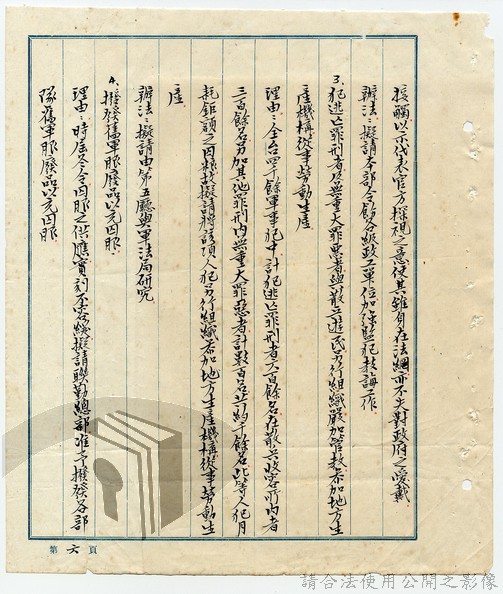 接觸以示代表官方探視之意使其雖身在法網亦不失對政府之愛戴
辦法：擬請本部令飭各級政工單位加強監犯教誨工作
3.犯逃亡罪刑者及無重大罪惡者與散兵遊民另行組織嚴加管教參加地方生
產機構從事勞動生產
理由：全台四千餘軍事犯中計犯逃亡罪刑者六百餘名在散兵收容所內者
三百餘名另加其他罪刑內無重大罪惡者計數百名共約千餘名此等人犯月
耗鉅額之囚糧故擬請將該項人犯另行組織參加地方生產機構從事勞動生
產
辦法：擬請由第五廳與軍法局研究
4.撥發舊軍服廢品以充囚服
理由：時屆冬令囚服之供應實刻不容緩擬請聯勤總部准予撥發各部
隊舊軍服廢品以充囚服
第六頁
請合法使用公開之影像